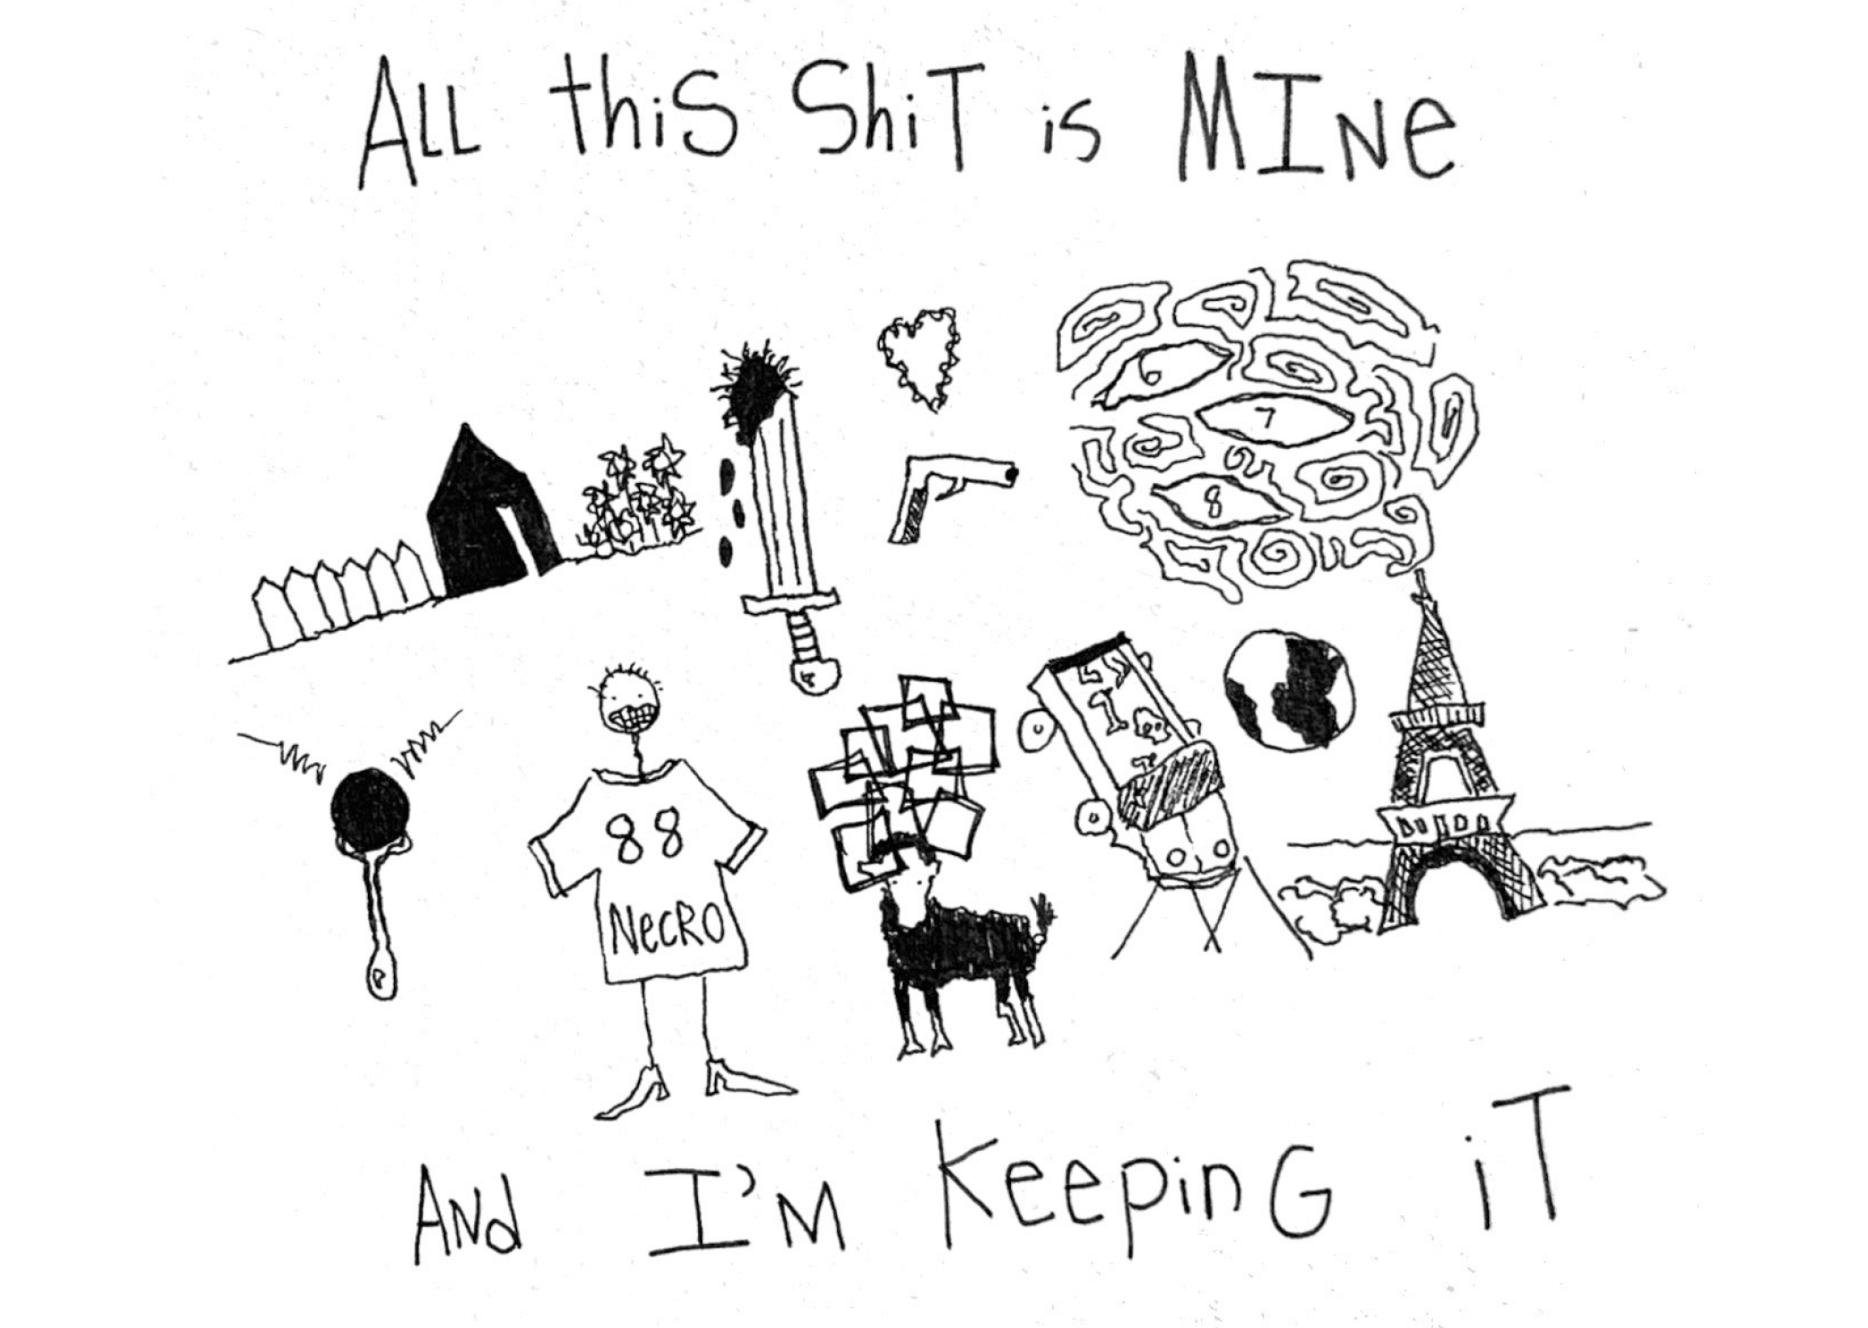 ALL thiS ShiT is MINe
6
7
8
88
NeCRO
ANd I'M KeepinG iT